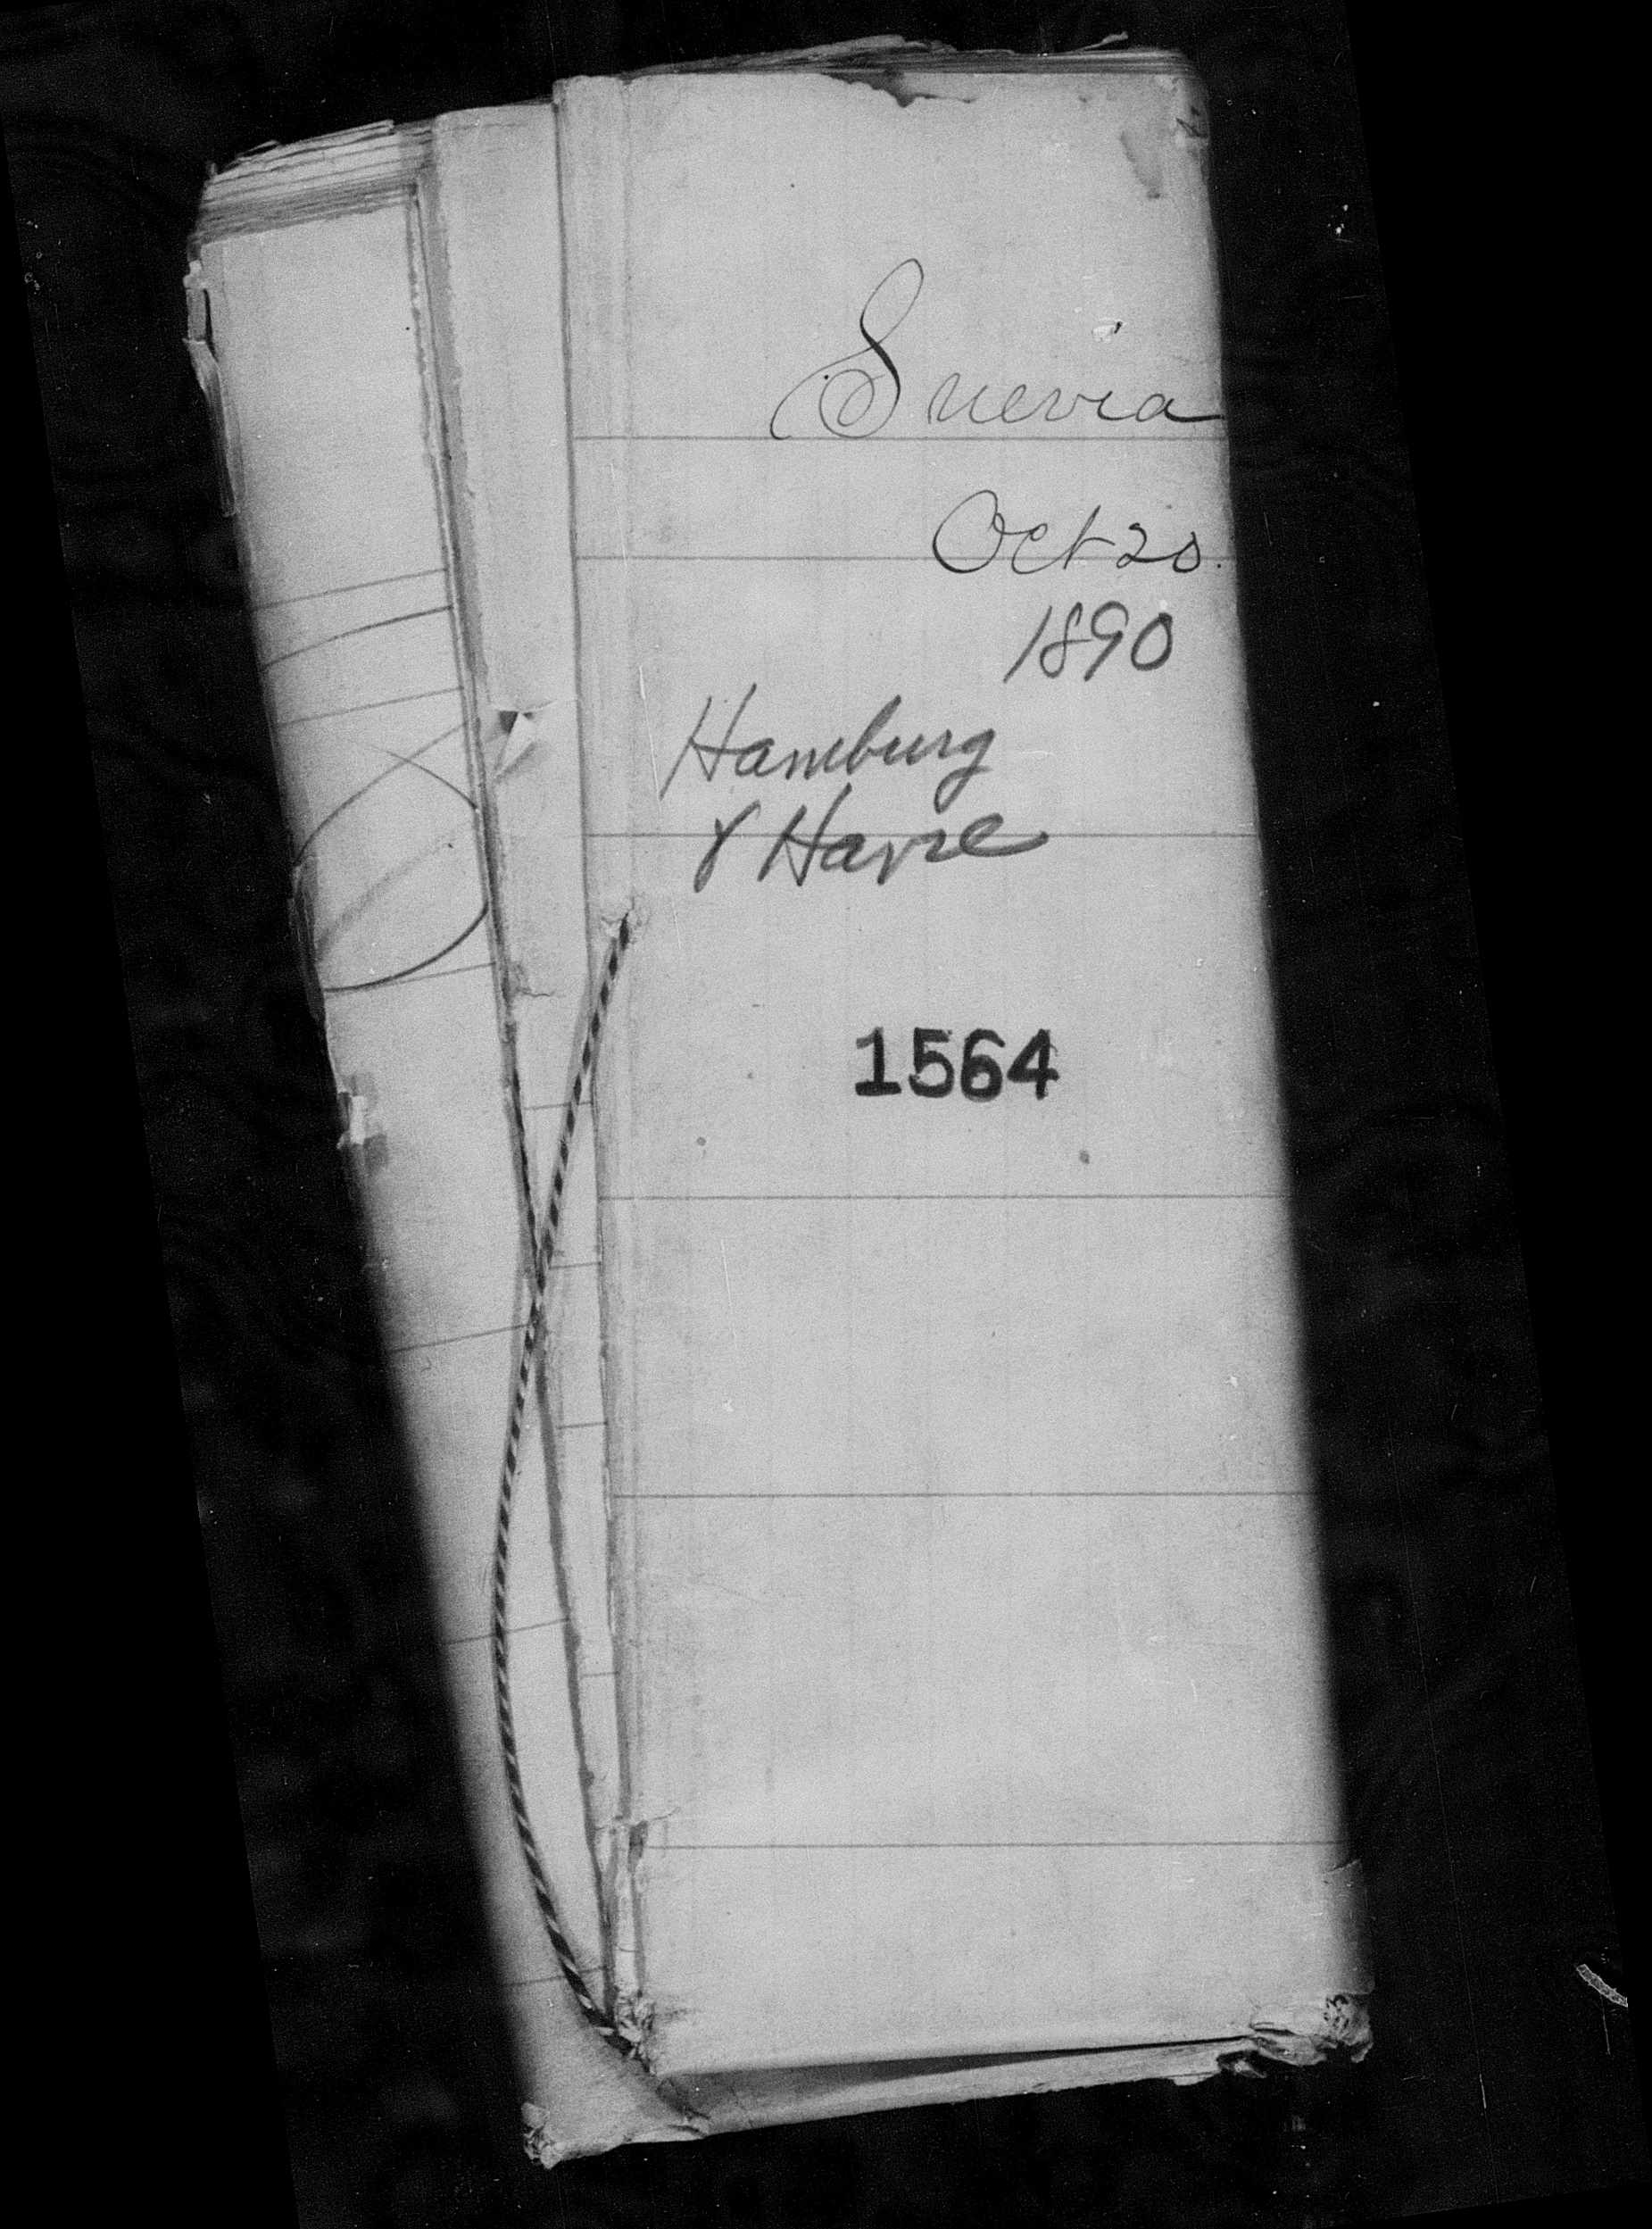 Suevia
Oct 20.
1890
Hamburg
& Havre
1564